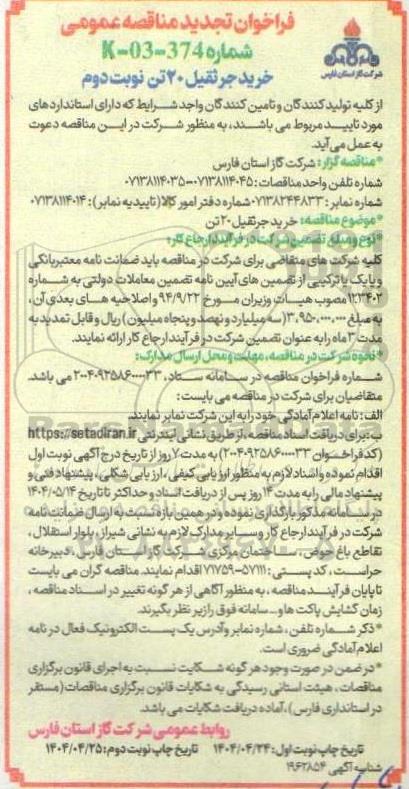 فراخوان تجدید مناقصه عمومی
شماره K-03-374
خرید جرثقیل ۲۰ تن نوبت دوم
شرکت گاز استان فارس
از کلیه تولیدکنندگان و تامین کنندگان واجد شرایط که دارای استانداردهای
مورد تایید مربوط می باشند، به منظور شرکت در این مناقصه دعوت
به عمل می آید.
*مناقصه گزار: شرکت گاز استان فارس
شماره تلفن واحد مناقصات: ۰۷۱۳۸۱۱۴۰۴۵-۰۷۱۳۸۱۱۴۰۳۵
شماره نمابر: ۰۷۱۳۸۲۴۴۸۳۳ شماره دفتر امور کالا (تاییدیه نمابر): ۰۷۱۳۸۱۱۴۰۱۴
*موضوع مناقصه: خرید جرثقیل ۲۰ تن
*نوع و مبلغ تضمین شرکت در فرآیند ارجاع کار:
کلیه شرکت های متقاضی برای شرکت در مناقصه باید ضمانت نامه معتبر بانکی
و یا یک یا ترکیبی از تضمین های آیین نامه تضمین معاملات دولتی به شماره
۱۲۳۴۰۲ مصوب هیات وزیران مورخ ۹۴/۹/۲۲ و اصلاحیه های بعدی آن،
به مبلغ ۳,۹۵۰,۰۰۰,۰۰۰ (سه میلیارد و نهصد و پنجاه میلیون) ریال و قابل تمدید به
مدت ۳ ماه را به عنوان تضمین شرکت در فرآیند ارجاع کار ارائه نمایند.
*نحوه شرکت در مناقصه، مهلت و محل ارسال مدارک:
شماره فراخوان مناقصه در سامانه ستاد، ۲۰۰۴۰۹۲۵۸۶۰۰۰۰۳۳ می باشد.
متقاضیان برای شرکت در مناقصه می بایست:
الف: نامه اعلام آمادگی خود را به این شرکت نمابر نمایند.
ب: برای دریافت اسناد مناقصه، از طریق نشانی اینترنتی https://setadiran.ir
(کد فراخوان ۲۰۰۴۰۹۲۵۸۶۰۰۰۰۳۳) به مدت ۷ روز از تاریخ درج آگهی نوبت اول
اقدام نموده و اسناد لازم به منظور ارزیابی کیفی، ارزیابی شکلی، پیشنهاد فنی و
پیشنهاد مالی را به مدت ۱۴ روز پس از دریافت اسناد و حداکثر تا تاریخ ۱۴۰۴/۰۵/۱۴
در سامانه مذکور بارگذاری نموده و در همین بازه نسبت به ارسال ضمانت نامه
شرکت در فرآیند ارجاع کار و سایر مدارک لازم به نشانی شیراز، بلوار استقلال،
تقاطع باغ حوض، ساختمان مرکزی شرکت گاز استان فارس، دبیرخانه
حراست، کد پستی: ۵۷۱۱۱-۷۱۷۵۹ اقدام نمایند. مناقصه گران می بایست
تا پایان فرآیند مناقصه، به منظور آگاهی از هر گونه تغییر در اسناد مناقصه،
زمان گشایش پاکت ها و... سامانه فوق را زیر نظر بگیرند.
*ذکر شماره تلفن، شماره نمابر و آدرس یک پست الکترونیک فعال در نامه
اعلام آمادگی ضروری است.
*در ضمن در صورت وجود هر گونه شکایت نسبت به اجرای قانون برگزاری
مناقصات، هیئت استانی رسیدگی به شکایات قانون برگزاری مناقصات (مستقر
در استانداری فارس)، آماده دریافت شکایات می باشد.
روابط عمومی شرکت گاز استان فارس
تاریخ چاپ نوبت اول: ۱۴۰۴/۰۴/۲۴ تاریخ چاپ نوبت دوم: ۱۴۰۴/۰۴/۲۵
شناسه آگهی ۱۹۶۲۸۵۴